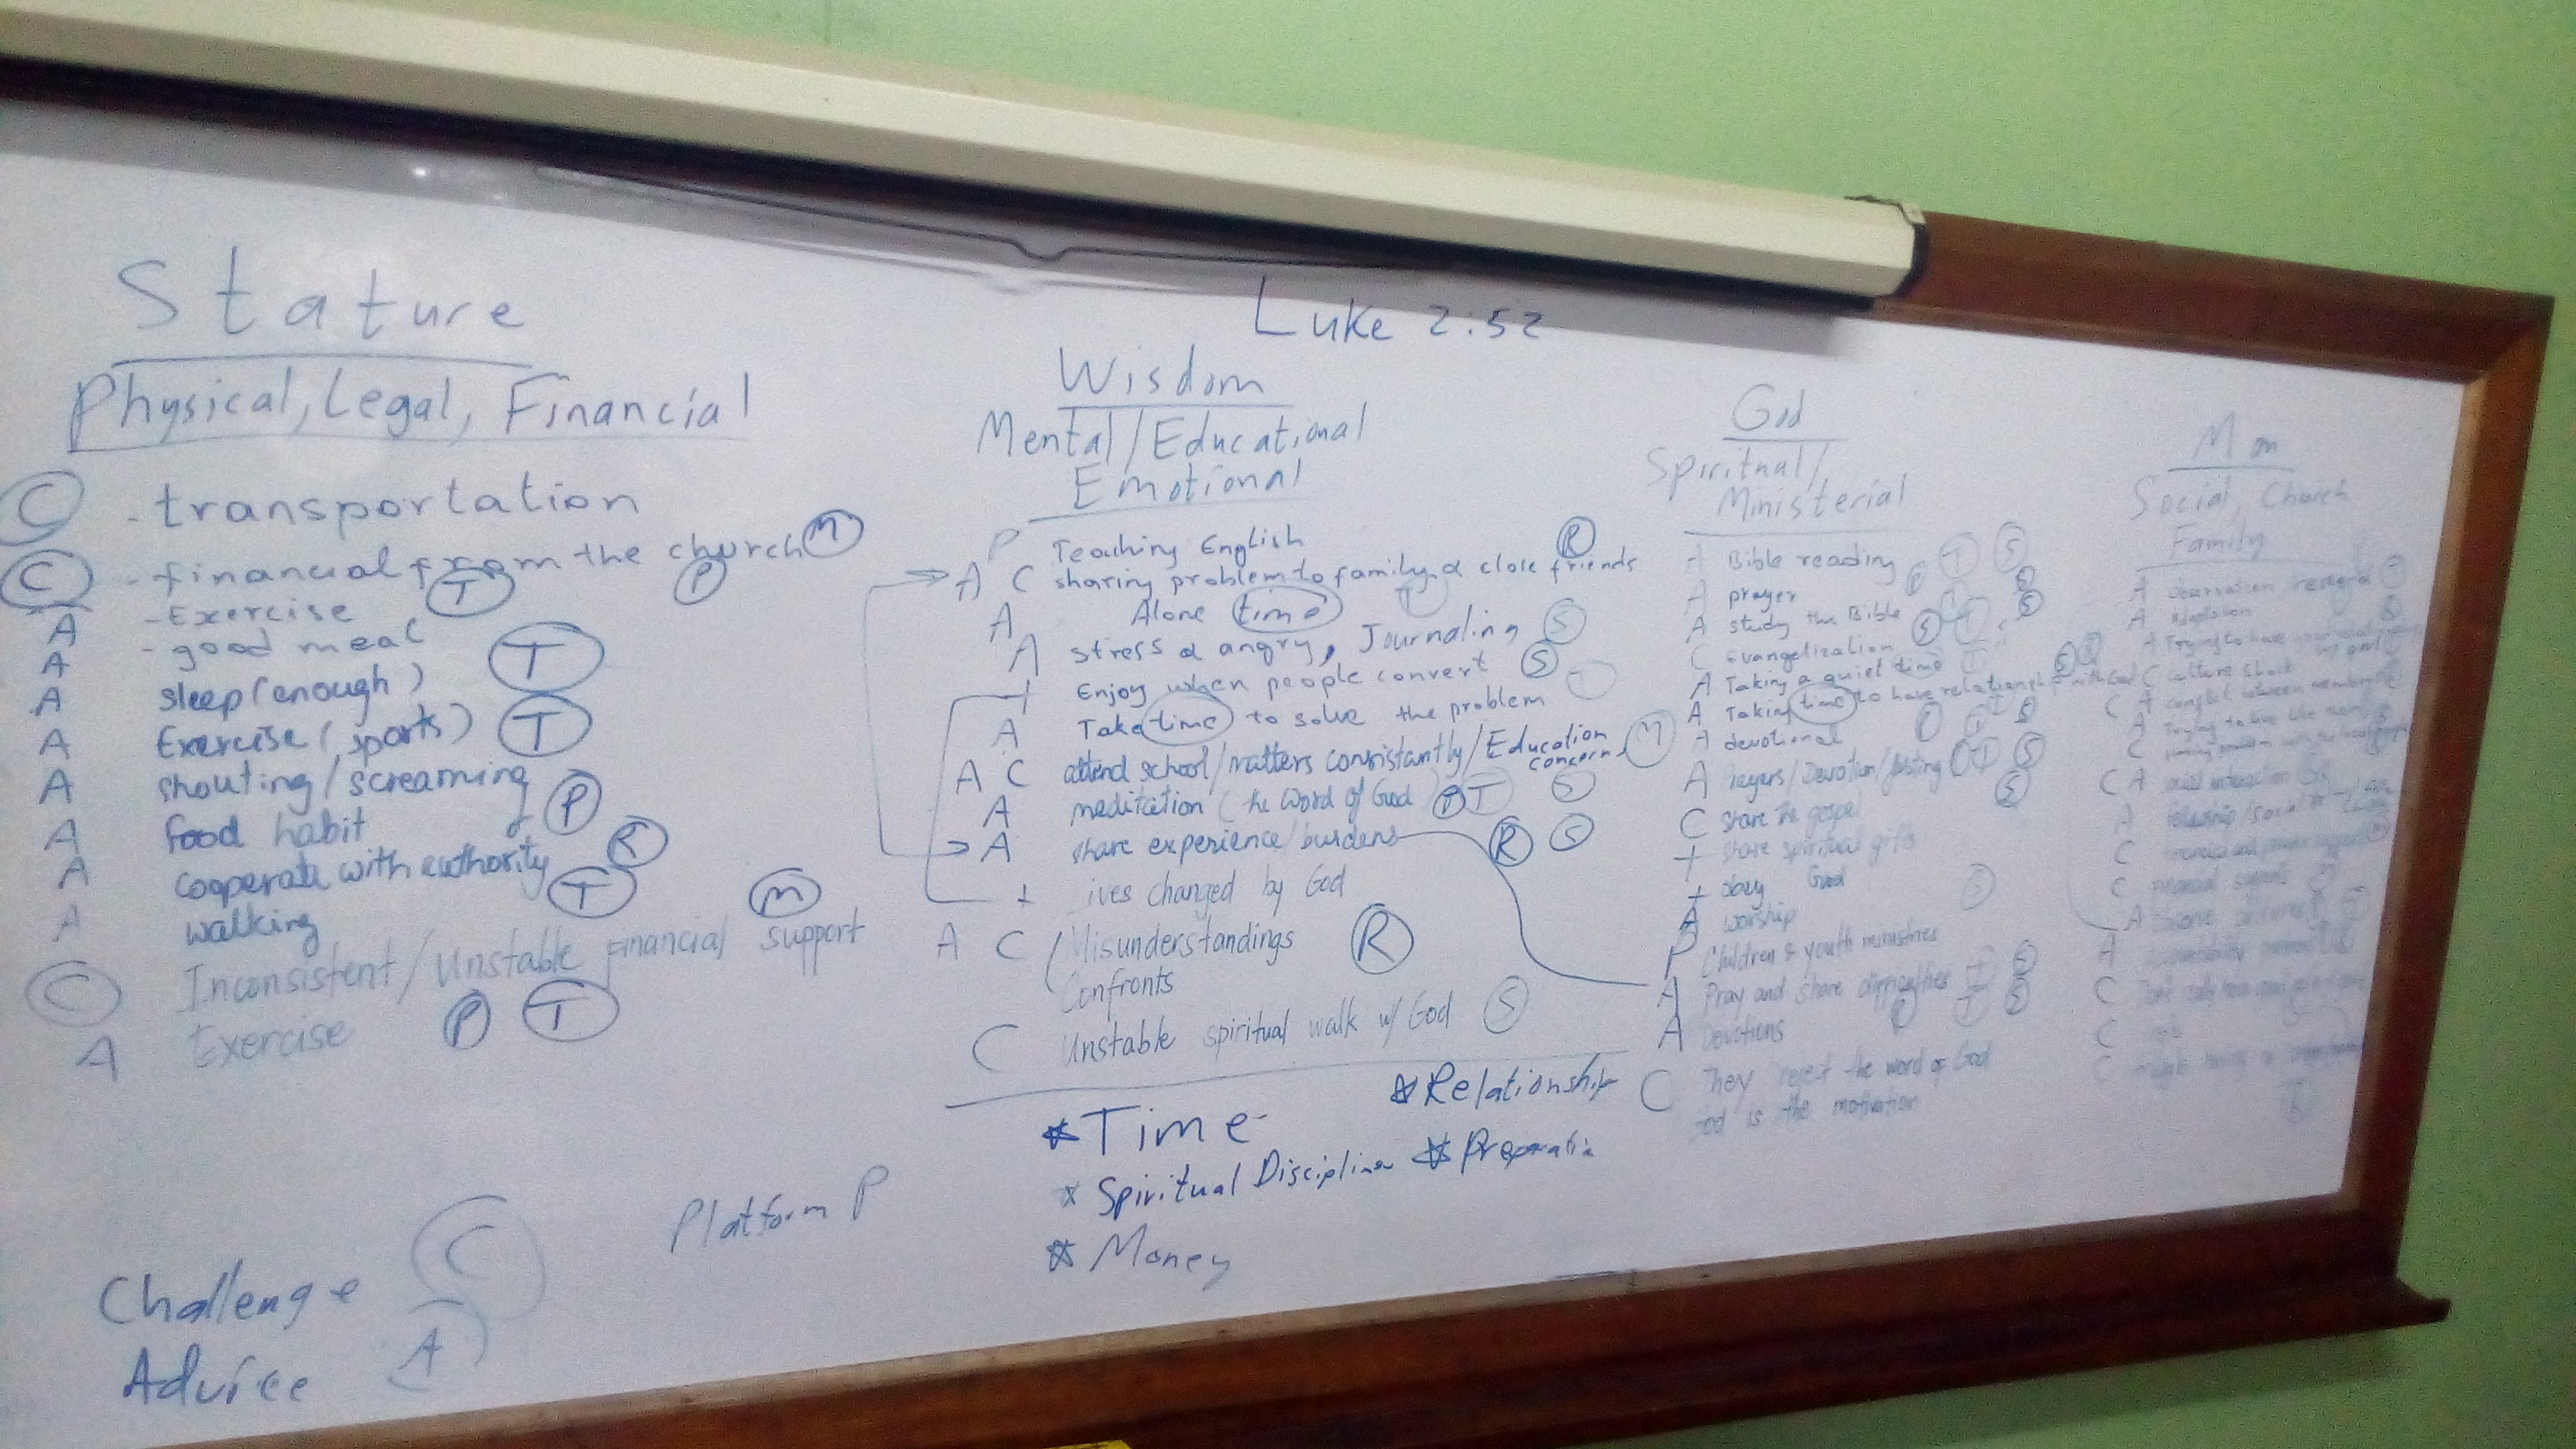 Luke 2:52
Stature
Physical, Legal, Financial
C - transportation
C - financial from the church M
A - Exercise T P
A - good meal
A sleep (enough) T
A Exercise (sports) T
A shouting/screaming
A food habit P
A cooperate with authority R
A walking T
C Inconsistent/Unstable Financial support M
A Exercise P T
Challenge C
Advice A
Platform P
Wisdom
Mental/Educational
Emotional
P Teaching English
A C sharing problem to family & close friends R
A Alone time T
A stress & angry, Journaling S
+ Enjoy when people convert S
A Take time to solve the problem T
A C attend school/matters consistantly/Education concerns M
A meditation (the Word of God) P T S
A share experience/burdens R S
+ ives changed by God
A C Misunderstandings R
Confronts
C Unstable spiritual walk w/ God S
* Time
* Relationship
* Spiritual Discipline
* Preparatin
* Money
God
Spiritual/
Ministerial
A Bible reading T S
A prayer P S
A study the Bible S T S
C Evangelization
A Taking a quiet time T S
A Taking time to have relationship with God
A devotional P T S
A Prayers/Devotion/fasting T S
C share the gospel S
+ share spiritual gifts
+ obey God
A worship S
P Children & youth ministries
A Pray and share difficulties T S
A Devotions P T S
C They reject the word of God
God is the motivation
Man
Social, Church
Family
A observation,
A adaptation
A Trying to have
C culture shock
C A conflict between
A Trying to live like
C
C A social interaction
A fellowship/social
C
C Financial
A
A Accountability
C
C
C